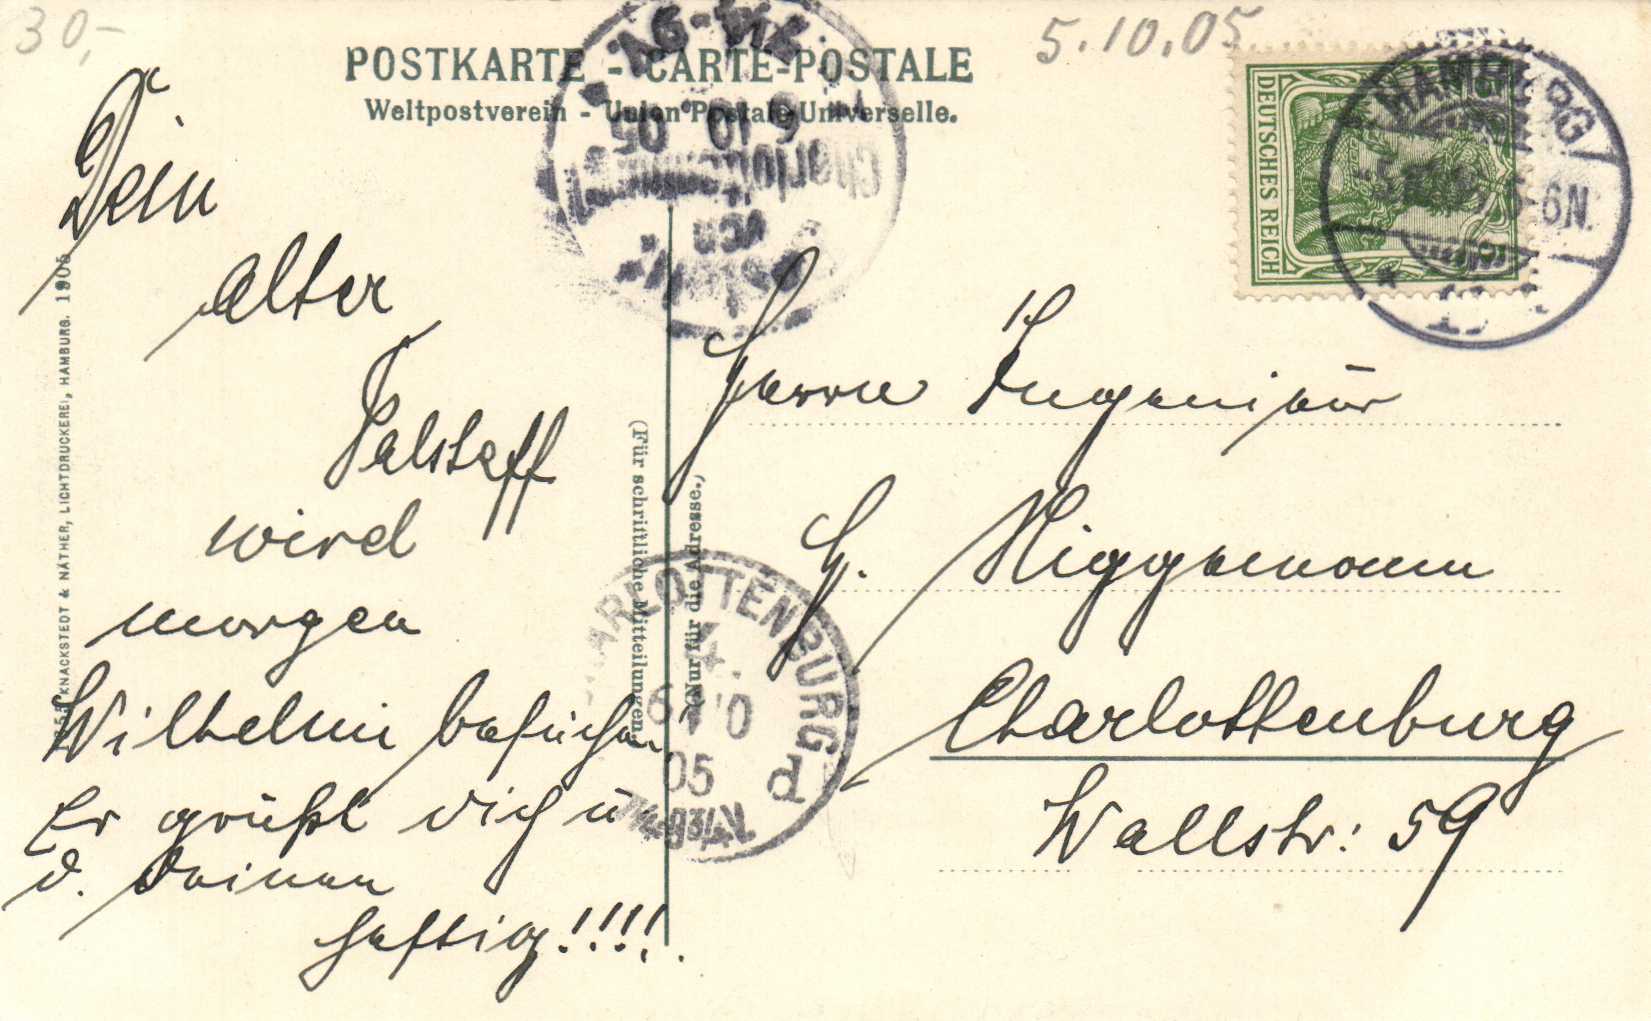 30,-
5.10.05
POSTKARTE - CARTE-POSTALE
Weltpostverein - Union Postale Universelle.
DEUTSCHES REICH
HAMBURG
6N.
6 10 05
Charlottenburg
von
Dein
alter
Falstaff
wird
morgen
Wilhelm besuchen
Er grüßt dich u
d. Deinen
heftig!!!!.
KNACKSTEDT & NÄTHER, LICHTDRUCKEREI, HAMBURG. 1905
(Für schriftliche Mitteilungen.)
(Nur für die Adresse.)
CHARLOTTENBURG
6 10
05
d
Herrn Ingenieur
G. Niggemann
Charlottenburg
Wallstr: 59